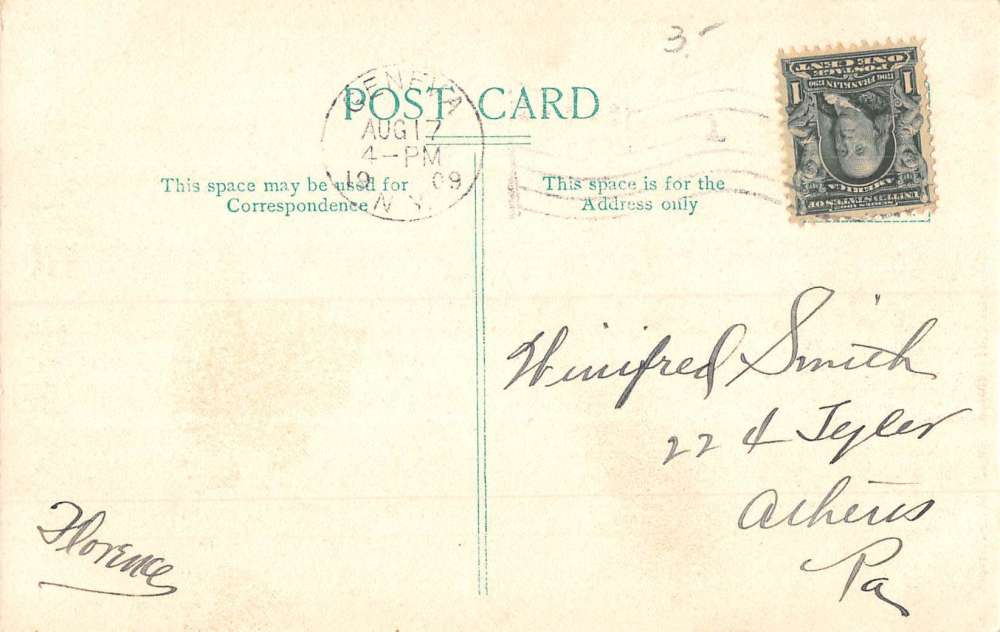 3.-
POST CARD
GENEVA
AUG 17
4-PM
1909
N.Y.
This space may be used for
Correspondence
This space is for the
Address only
POSTAGE
ONE CENT
1 1
1706 FRANKLIN 1790
AMERICA
UNITED STATES OF
Winifred Smith
224 Tyler
Athens
Pa
Florence